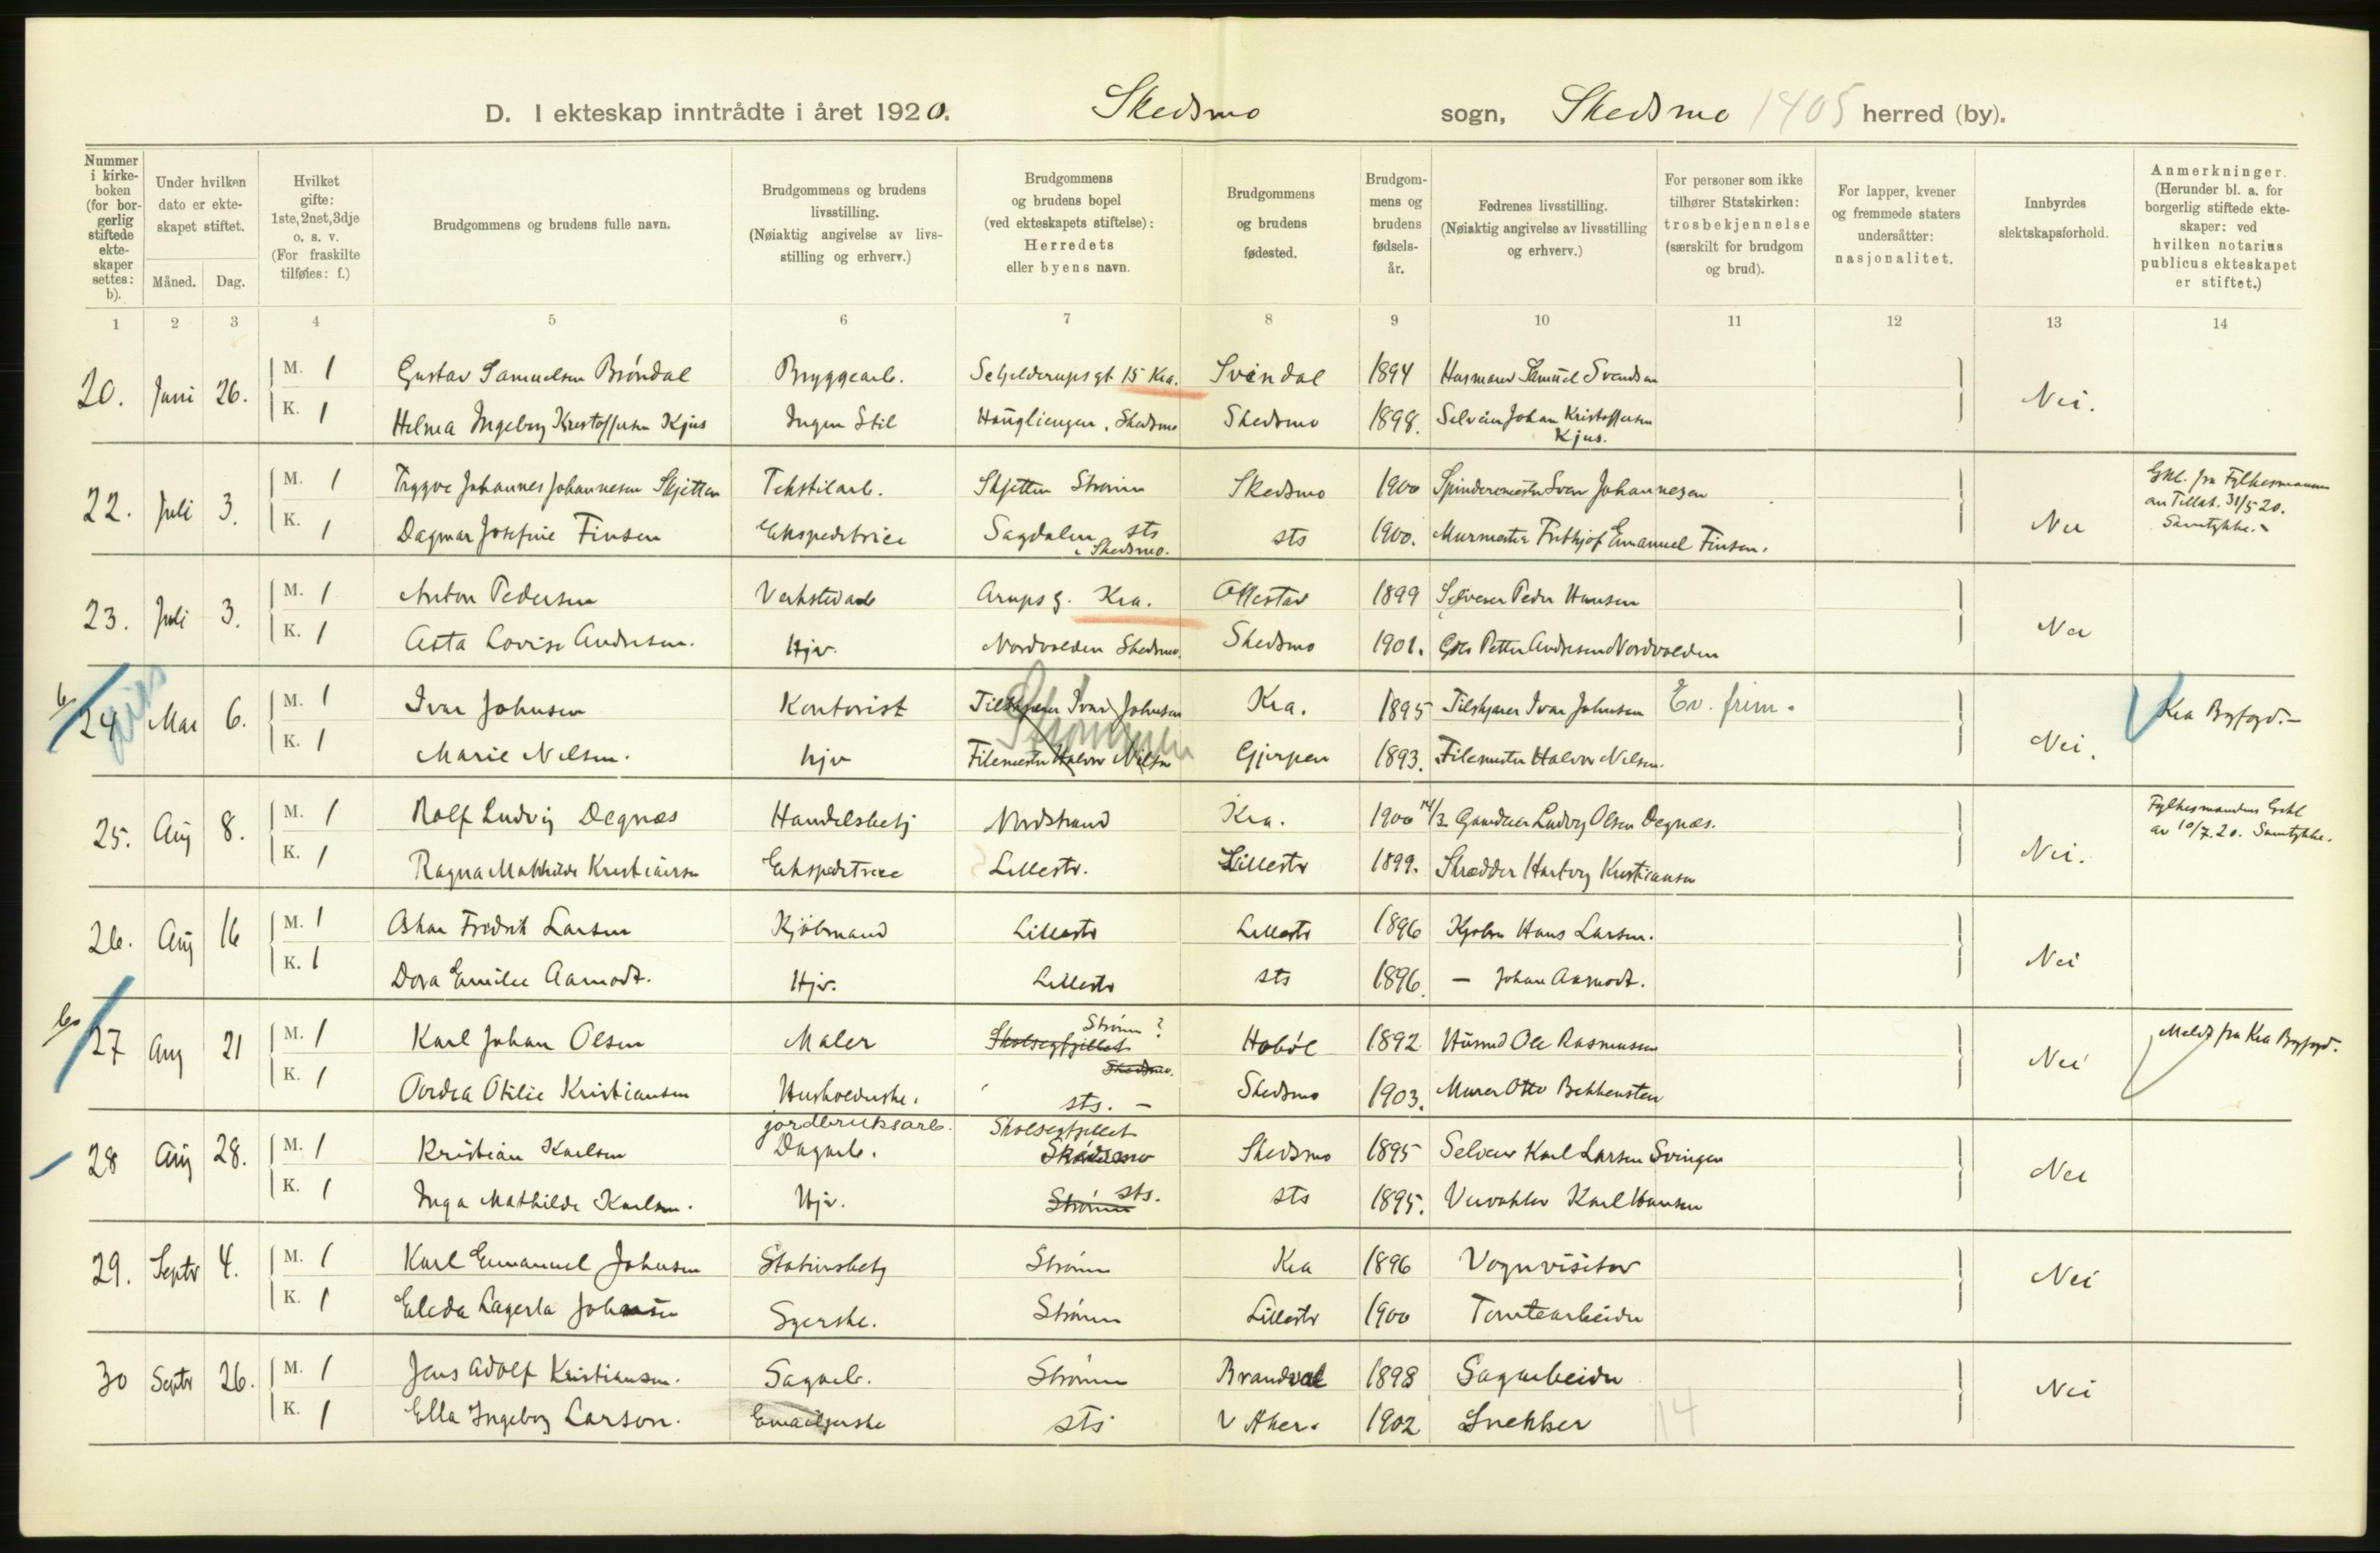 D. I ekteskap inntrådte i året 1920. Skedsmo sogn, Skedsmo 1405 herred (by).
Nummer i kirke-boken (for bor-gerlig stiftede ekte-skaper settes: b).
Under hvilken dato er ekte-skapet stiftet.
Måned. Dag.
Hvilket gifte: 1ste, 2net, 3dje o. s. v. (For fraskilte tilføies: f.)
Brudgommens og brudens fulle navn.
Brudgommens og brudens livsstilling. (Nøiaktig angivelse av livs-stilling og erhverv.)
Brudgommens og brudens bopel (ved ekteskapets stiftelse): Herredets eller byens navn.
Brudgommens og brudens fødested.
Brudgom-mens og brudens fødsels-år.
Fedrenes livsstilling. (Nøiaktig angivelse av livsstilling og erhverv.)
For personer som ikke tilhører Statskirken: trosbekjennelse (særskilt for brudgom og brud).
For lapper, kvener og fremmede staters undersåtter: nasjonalitet.
Innbyrdes slektskapsforhold.
Anmerkninger. (Herunder bl. a. for borgerlig stiftede ekte-skaper: ved hvilken notarius publicus ekteskapet er stiftet.)
1 2 3 4 5 6 7 8 9 10 11 12 13 14
20. Juni 26. M. 1 Gustav Samuelsen Bróndal Bryggearb. Schjelderupsgt 15 Kra. Svindal 1894 Husmand Samuel Svendsen Nei.
K. 1 Helma Ingeborg Kristoffersen Kjus Ingen Stil Haugliengen, Skedsmo Skedsmo 1898. Selveier Johan Kristoffersen
Kjus.
22. Juli 3. M. 1 Trygve Johannes Johannesen Skjetten Tekstilarb. Skjetten Strømm Skedsmo 1900 Spinderimester Sven Johannesen Nei Gkl. fra Fylkesmannen
av Tillat. 31/5 20.
Samtykke.
K. 1 Dagmar Josefine Finsen Ekspeditrice Sagdalen sts sts 1900. Murmester Frithjof Emanuel Finsen.
i Skedsmo.
23. Juli 3. M. 1 Anton Pedersen Verkstedarb Arups g. Kra. Offestad 1899 Selveier Peder Hansen Nei
K. 1 Asta Lovise Andresen. Hjv. Nordvolden Skedsmo. Skedsmo 1901. Gbr Petter Andresen Nordvolden
b
24 Mai 6. M. 1 Ivar Johnsen Kontorist Tilskjærer Ivar Johnsen Kra. 1895 Tilskjærer Ivar Johnsen Ev. frim. Nei. Kra Byfogd.—
Strømmen
K. 1 Marie Nilsen. hjv Filemester Halvor Nilsen Gjerpen 1893. Filemester Halvor Nilsen.
25. Aug 8. M. 1 Rolf Ludvig Degnæs Handelsbetj Nordstrand Kra. 1900 14/3 Gaardeier Ludvig Olsen Degnæs. Nei. Fylkesmandens Gskl
av 10/7.20. Samtykke.
K. 1 Ragna Mathilde Kristiansen Ekspeditrice Lillestr. Lillestr 1899. Skrædder Hartvig Kristiansen
26. Aug 16 M. 1 Oskar Fredrik Larsen Kjøbmand Lillestr Lillestr 1896 Kjøbm Hans Larsen. Nei
K. 1 Dora Emilie Aamodt. Hjv. Lillestr sts 1896. — Johan Aamodt.
b
27 Aug 21 M. 1 Karl Johan Olsen Maler Strømm ? Hobøl 1892 Husmd Ole Rasmussen Nei Meldt fra Kra Byfogd.
Skolsegfjellet
Skedsmo.
K. 1 Ovidia Otilie Kristiansen Husholderske. sts. — Skedsmo 1903. Murer Otto Bekkensten
jordbruksarb. Skolsegfjellet
28 Aug 28. M. 1 Kristian Karlsen Dagarb. Skedsmo Skedsmo 1895 Selveier Karl Larsen Svingen Nei
K. 1 Inga Mathilde Karlsen. Hjv. Strømm sts. sts 1895. Veivokter Karl Hansen
29. Septr 4. M. 1 Karl Emanuel Johnsen Stationsbetj Strømm Kra 1896 Vognvisitør Nei
K. 1 Elida Lagerta Johnsen Syerske. Strømm Lillestr 1900 Tomtearbeider
30 Septr 26. M. 1 Jens Adolf Kristiansen. Sagarb. Strømm Brandval 1898 Sagarbeider Nei
K. 1 Ella Ingeborg Larson. Emailjerske sts V Aker. 1902 Snekker 14